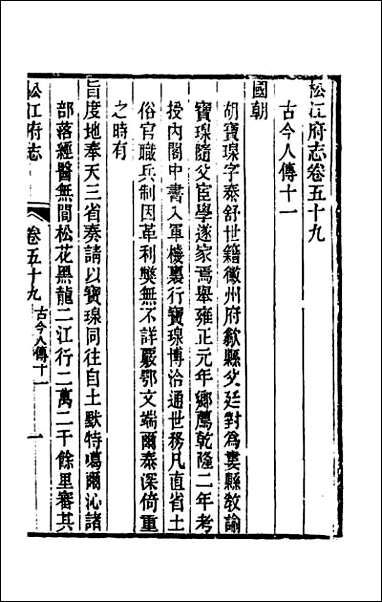 松江府志卷五十九
古今人傳十一
國朝
胡寶瑔字泰舒世籍徽州府歙縣父廷對為婁縣教諭
寶瑔隨父宦學遂家焉舉雍正元年鄉薦乾隆二年考
授內閣中書入軍機裏行寶瑔博洽通世務凡直省土
俗官職兵制因革利弊無不詳覈鄂文端爾泰深倚重
之時有
旨度地奉天三省奏請以寶瑔同往自土默特噶爾沁諸
部落經醫無閭松花黑龍二江行二萬二千餘里審其
松江府志
卷五十九
古今人傳十一
一